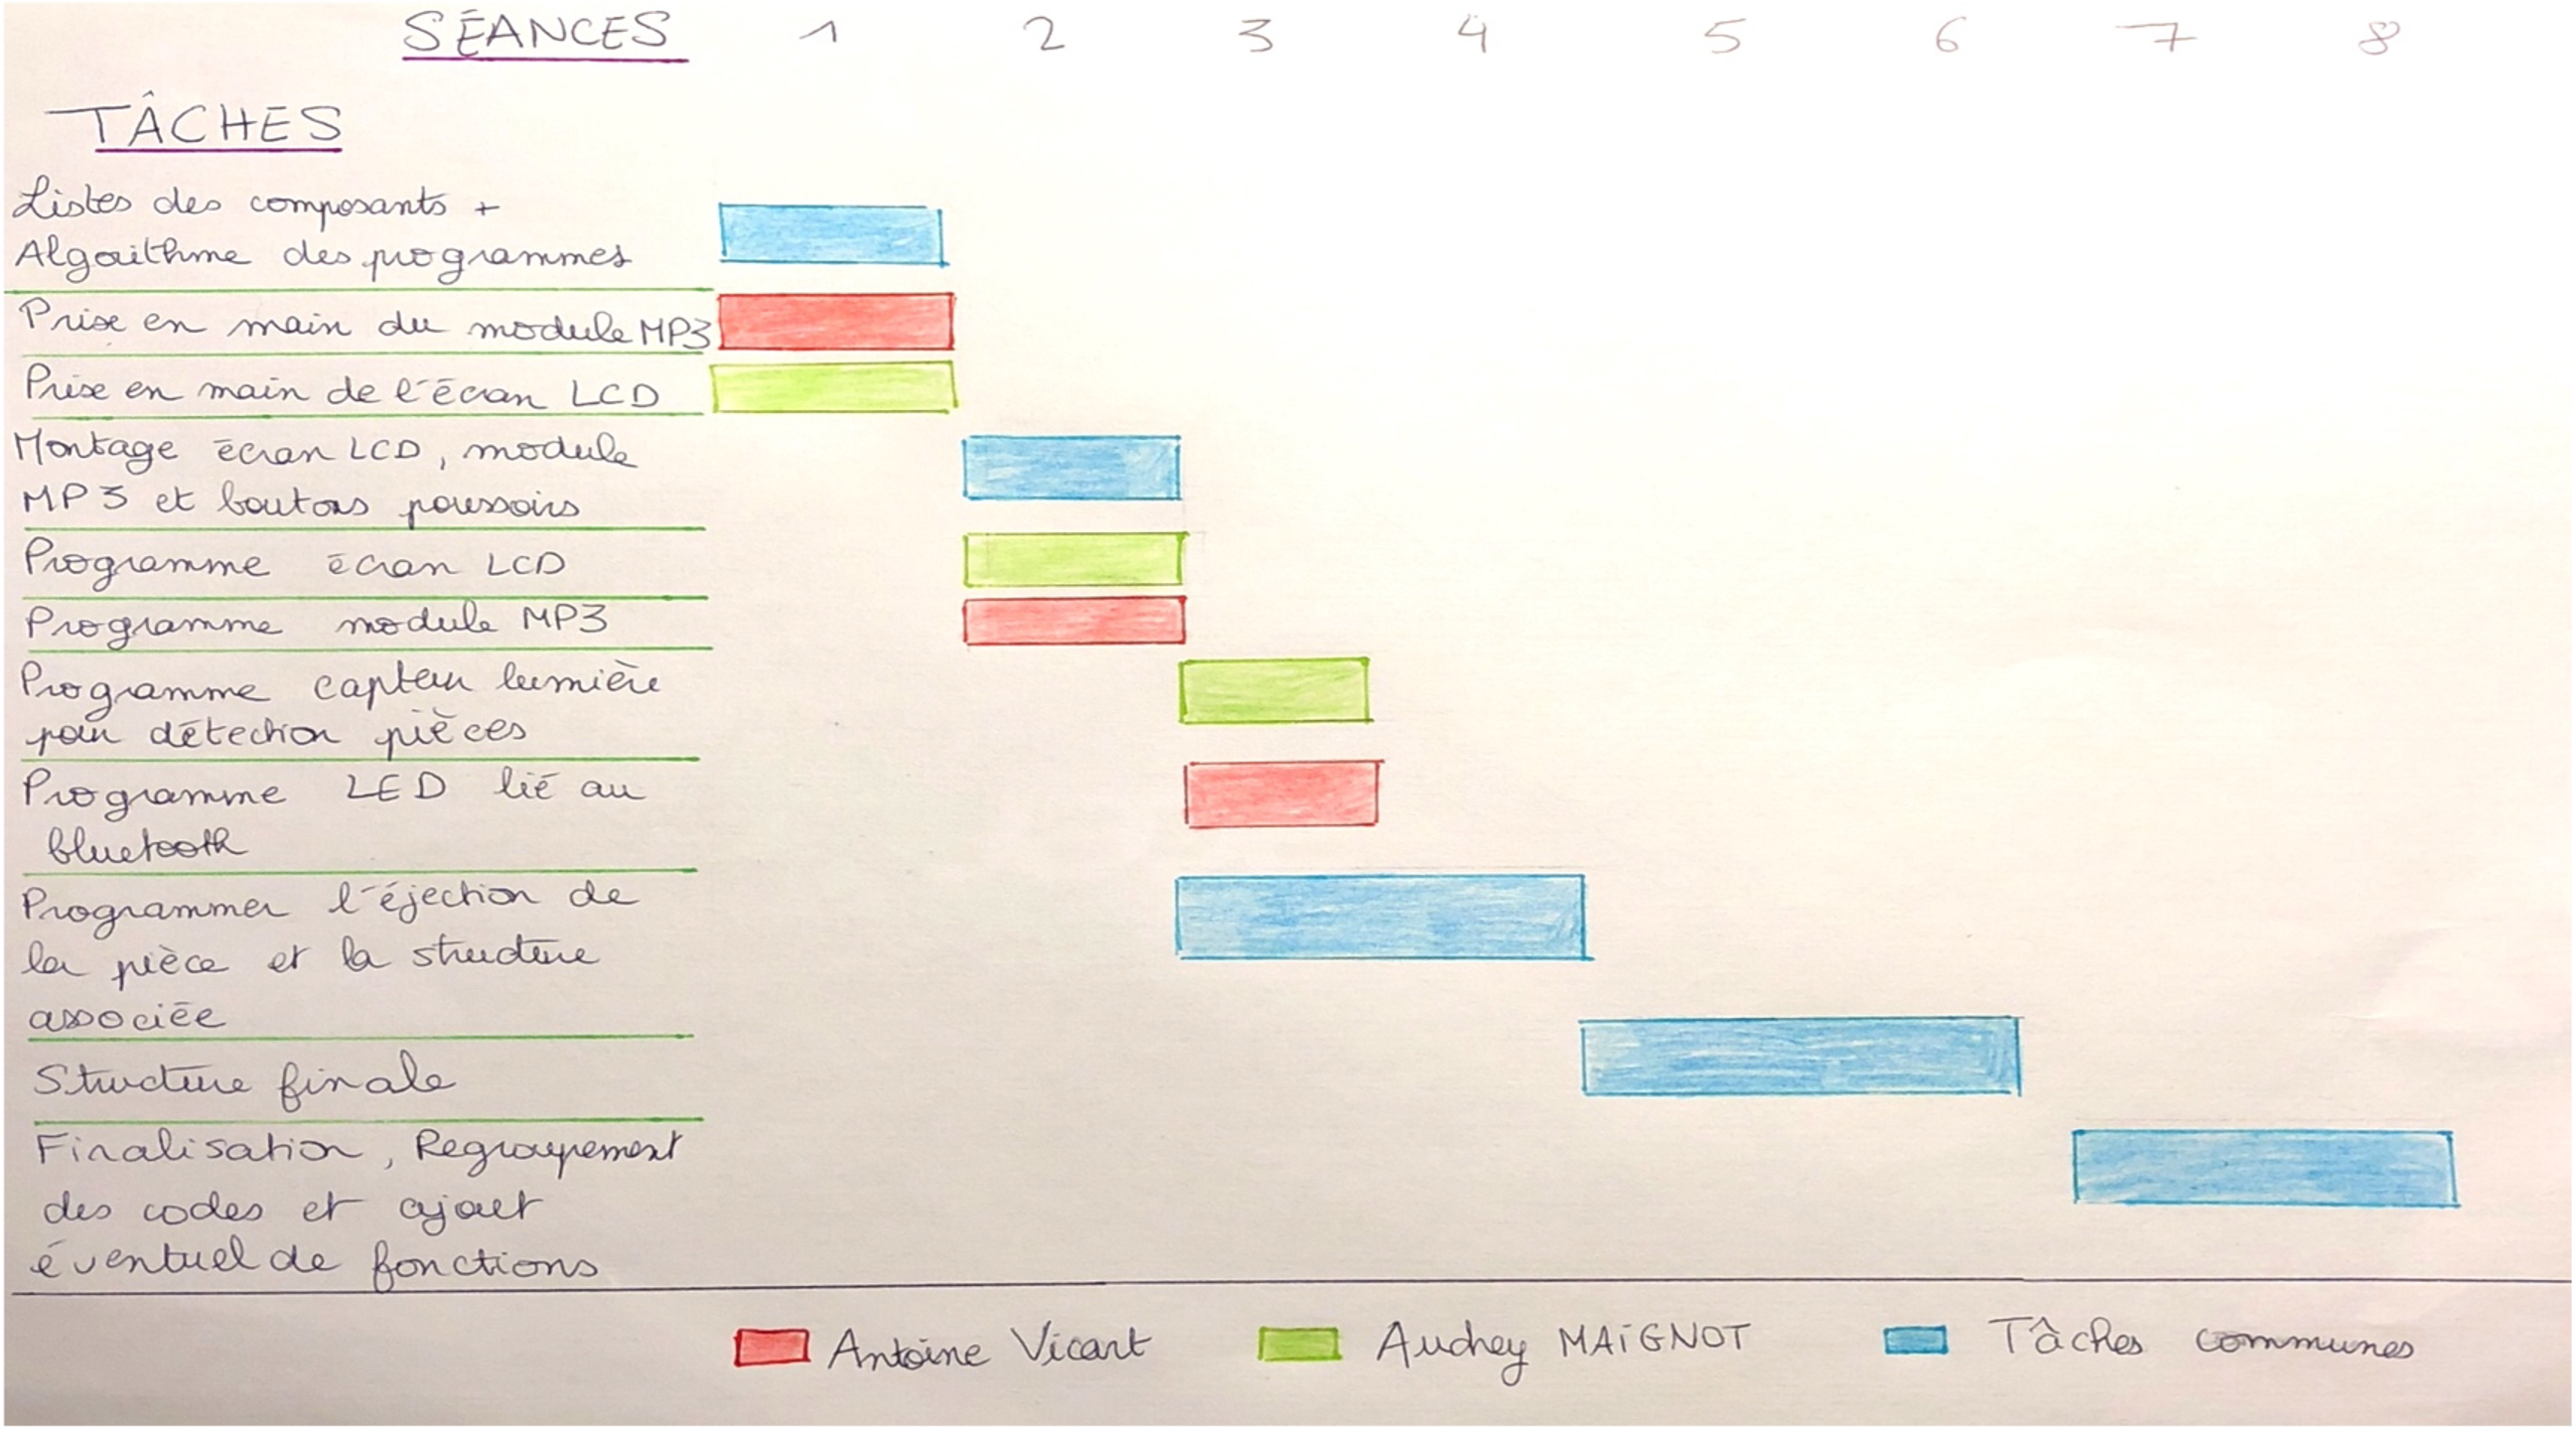 SÉANCES 1 2 3 4 5 6 7 8
TÂCHES
Listes des composants +
Algorithme des programmes
Prise en main du module MP3
Prise en main de l'écran LCD
Montage écran LCD, module
MP3 et boutons poussoirs
Programme écran LCD
Programme module MP3
Programme capteur lumière
pour détection pièces
Programme LED lié au
bluetooth
Programmer l'éjection de
la pièce et la structure
associée
Structure finale
Finalisation, Regroupement
des codes et ajout
éventuel de fonctions
Antoine Vicart Audrey MAIGNOT Tâches communes